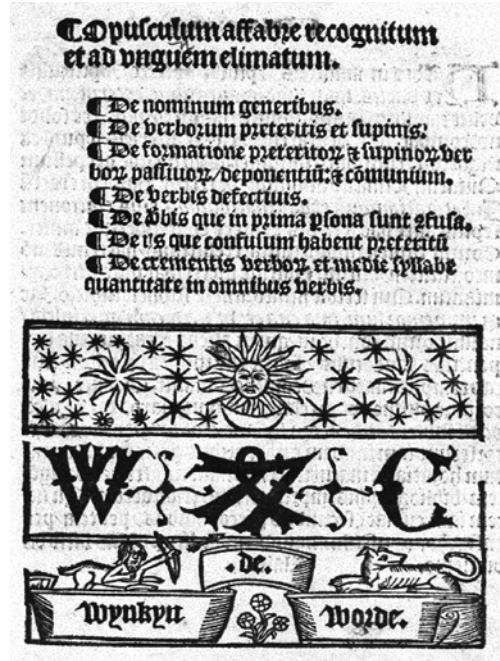 ¶Opusculum affabre recognitum
et ad vnguem elimatum.
¶De nominum generibus.
¶De verborum preteritis et supinis.
¶De formatione preteritoꝝ ⁊ supinoꝝ ver
boꝝ passiuoꝝ/deponentiū: ⁊ cōmunium.
¶De verbis defectiuis.
¶De v̄bis que in prima ꝑsona sunt ꝯfusa.
¶De ijs que confusum habent preteritū
¶De crementis verboꝝ et medie syllabe
quantitate in omnibus verbis.
W C
.de.
wynkyn worde.